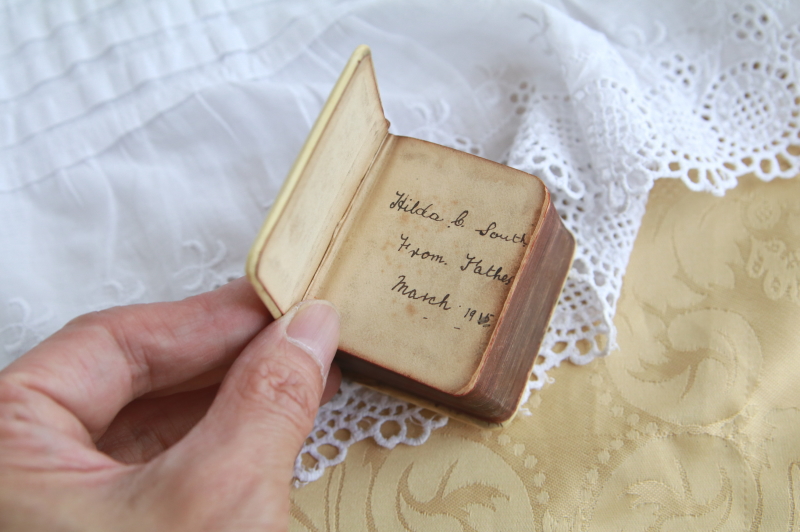 Hilda C South
From. Father
March. 1915